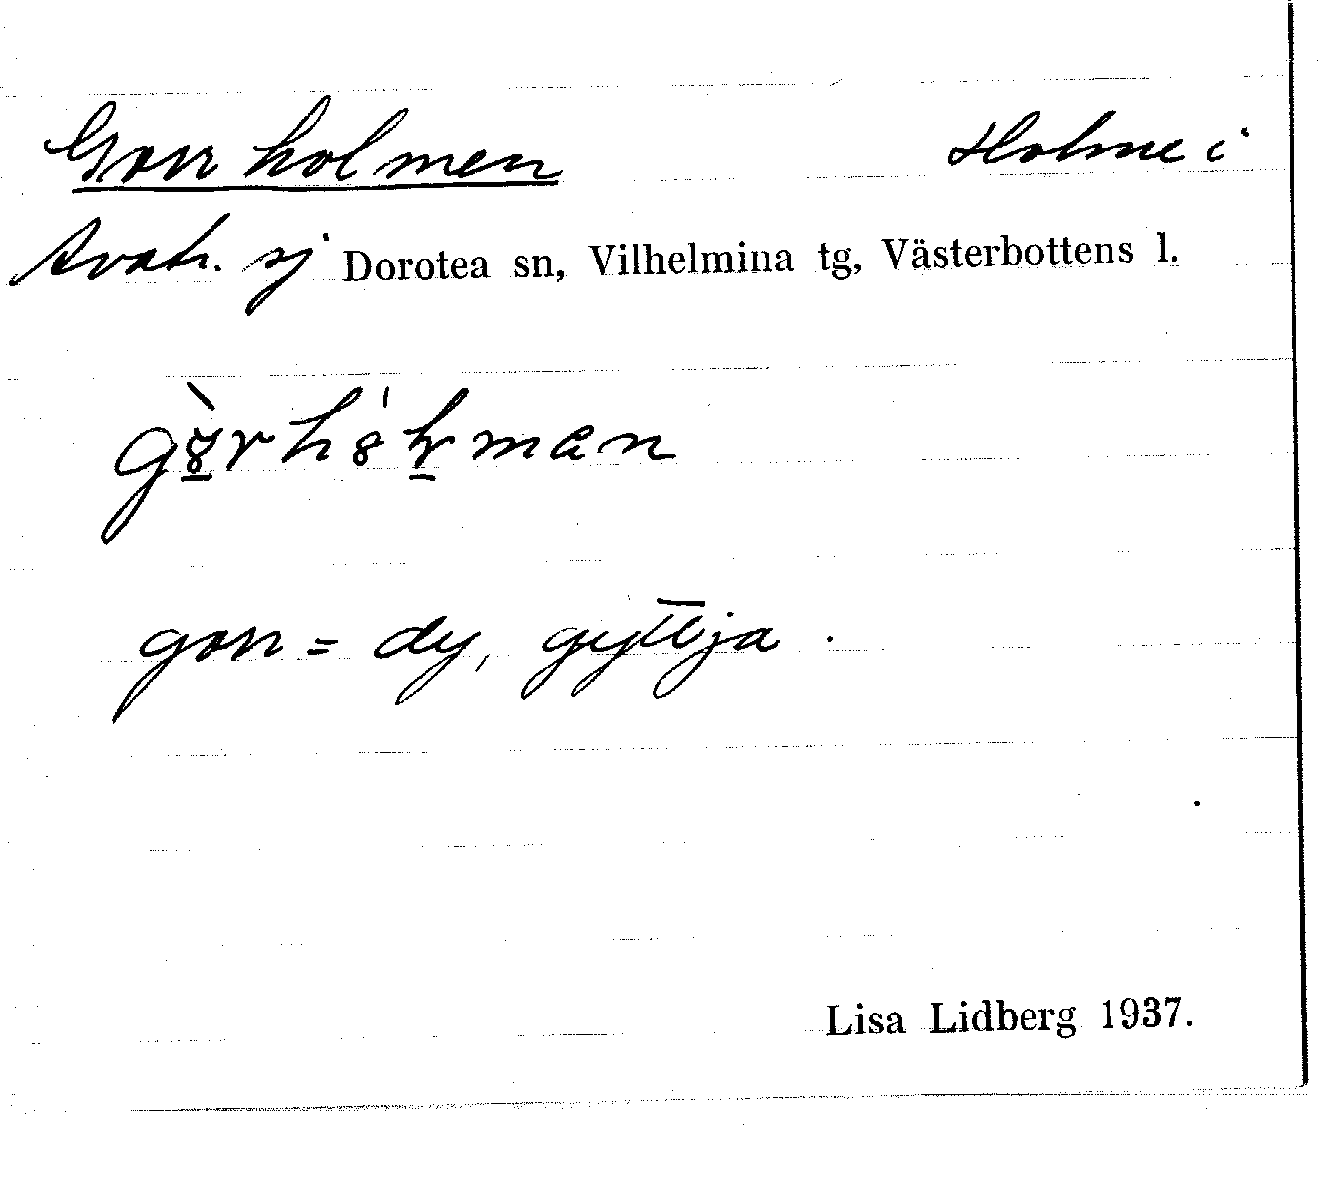 Gorrholmen Holme i
Avatr. sj Dorotea sn, Vilhelmina tg, Västerbottens l.
gorr = dy, gyttja.
Lisa Lidberg 1937.